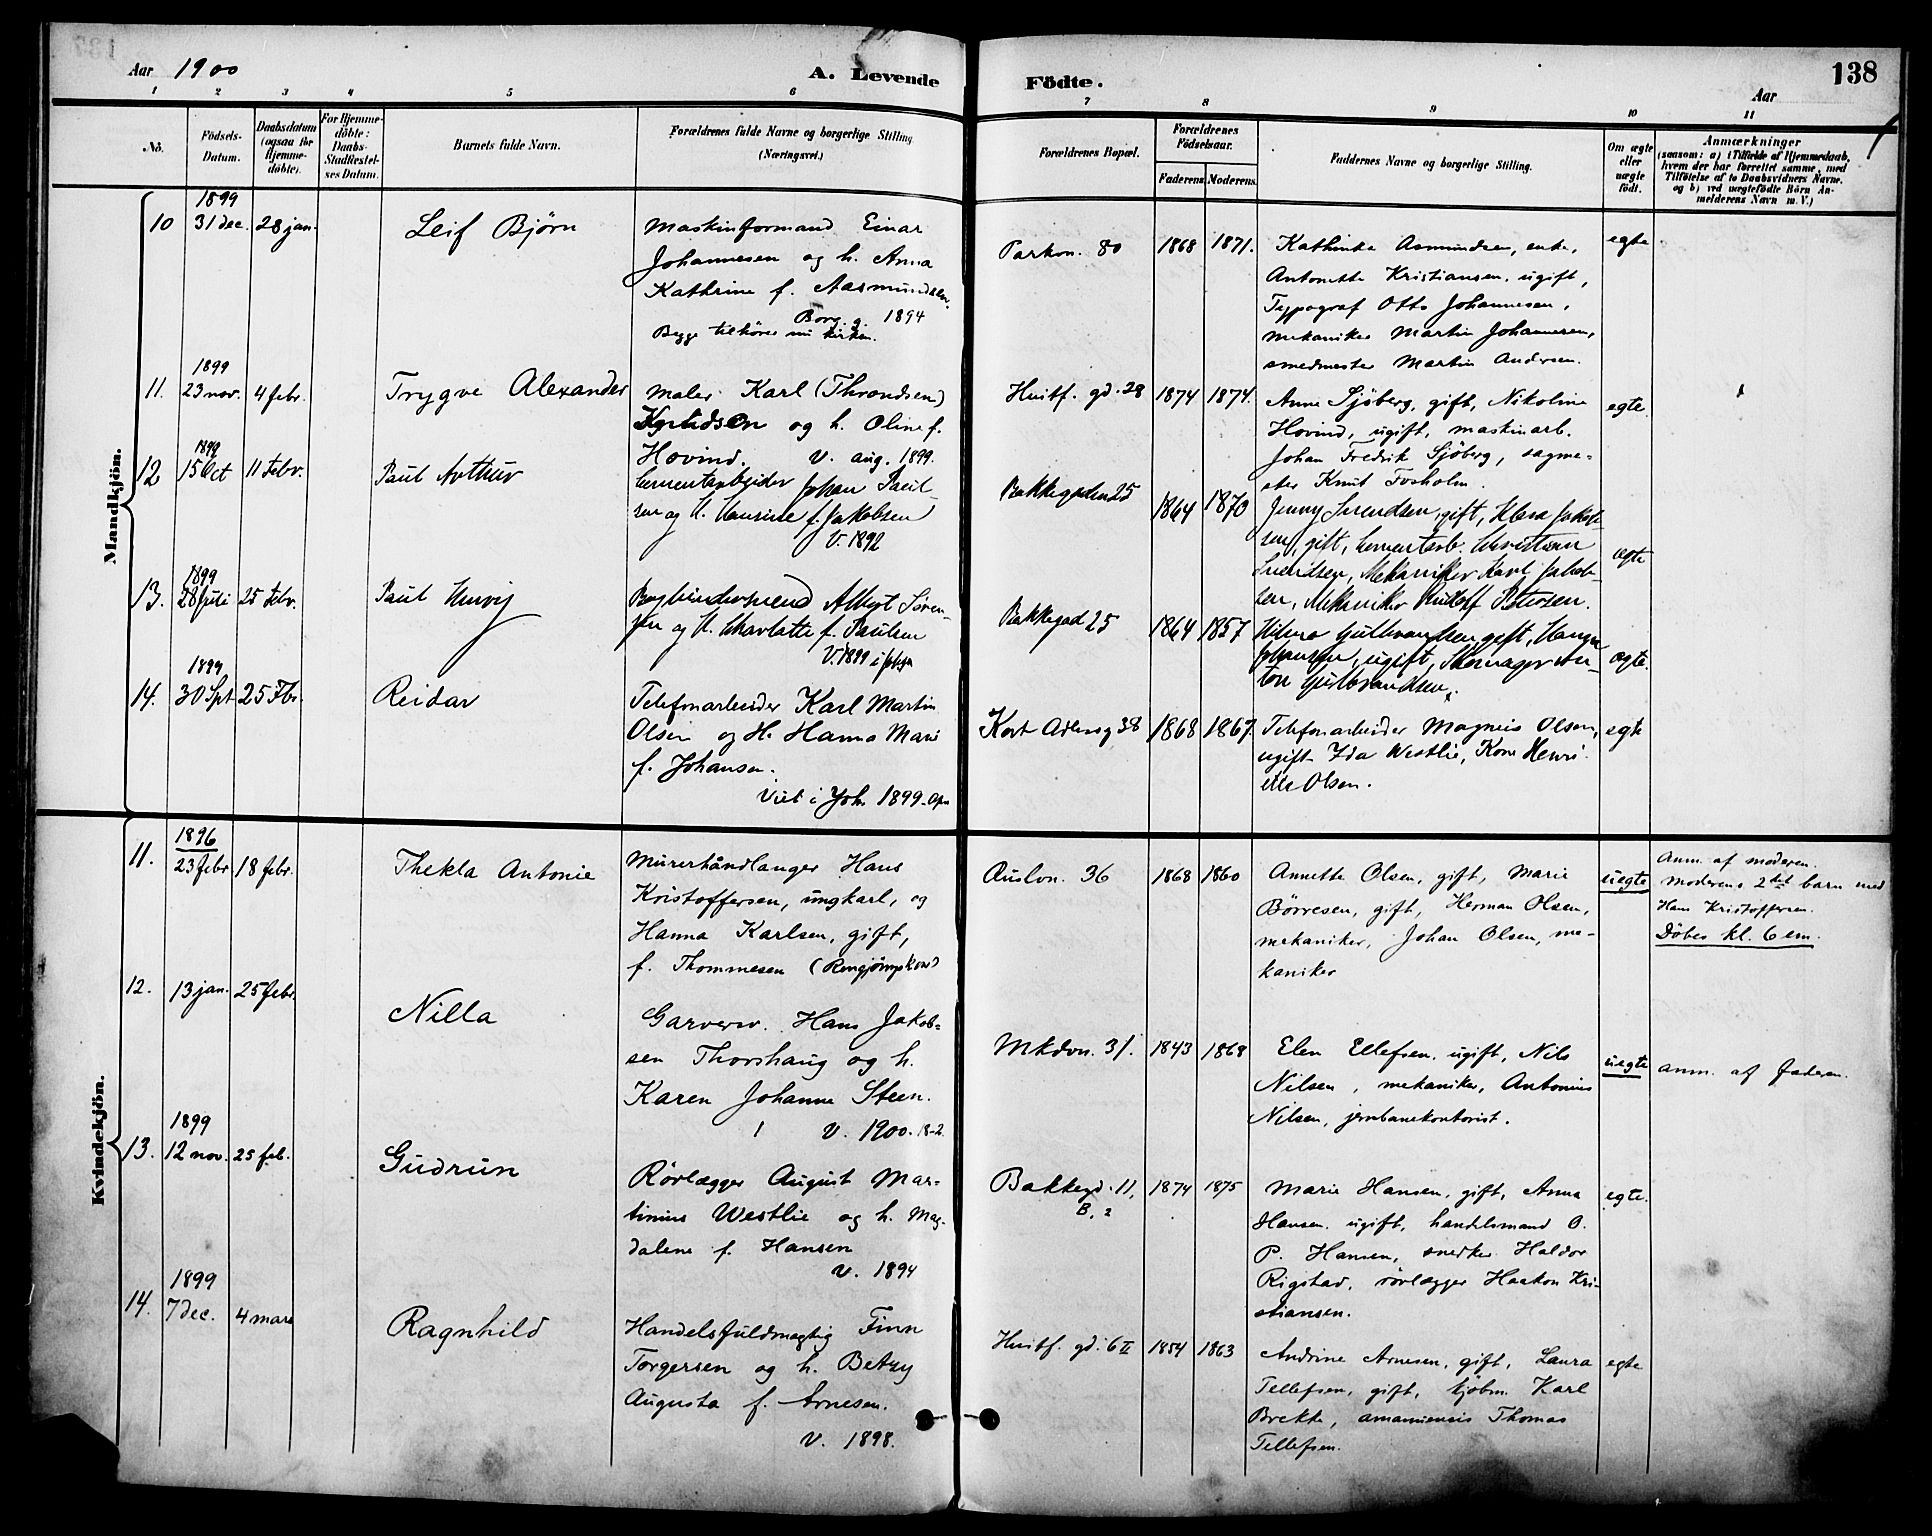 Aar 1900
A. Levende Födte.
Aar
138
1 2 3 4 5 6 7 8 9 10 11
No.
Födsels-Datum.
Daabsdatum (ogsaa for Hjemme-döbte).
For Hjemme-döbte: Daabs-Stadfæstelses Datum.
Barnets fulde Navn.
Forældrenes fulde Navne og borgerlige Stilling (Næringsvei.)
Forældrenes Bopæl.
Forældrenes Födselsaar.
Faderens. Moderens.
Faddernes Navne og borgerlige Stilling.
Om ægte eller uægte födt.
Anmærkninger
(saasom: a) i Tilfælde af Hjemmedaab,
hvem der har forrettet samme, med
Tilföielse af to Daabsvidners Navne.
og b) ved uægtefödte Börn An-
melderens Navn m. V.)
Mandkjön.
1899
10 31 dec. 28 jan. Leif Bjørn
Maskinformand Einar
Johannesen og h. Anna
Kathrine f. Aasmundsen.
Borg. g. 1894
Begge tilhører nu kirken.
Parkvn. 80 1868 1871.
Kathinka Asmundsen, enke,
Antonette Kristiansen, ugift,
Typograf Otto Johannesen,
mekaniker Martin Johannesen,
smedmester Martin Andersen.
egte
1899
11. 23 nov. 4 febr. Trygve Alexander
Maler Karl (Throndsen)
Knudsen og h. Oline f.
Hovind. V. aug. 1899.
Huitf. gd. 28 1874 1874.
Anna Sjöberg, gift, Nikoline
Hovind, ugift, maskinarb.
Johan Fredrik Sjöberg, sagme-
ster Knut Fosholm.
egte.
12 15 Oct 11 Febr. Paul Arthur
Cementarbeider Johan Paul-
sen og h. Laurine f. Jakobsen
V. 1892
Bakkegaden 25 1864 1870
Jenny Svendsen, gift, Klara Jakob-
sen, gift, Cementarb. Christian
Svendsen, Mekaniker Karl Jakob-
sen, Mekaniker Rudolf Petersen.
ægte
1899
13. 28 Juli 25 Febr. Paul
Bogbindersvend Albert Søren-
sen og h. Charlotte f. Paulsen
V. 1899
Bakkegad 25 1864 1857
gift,
ugift, Skomager An-
ton Gulbrandsen.
ægte.
1899
14. 30 Spt 25 Fbr. Reidar
Telefonarbeider Karl Martin
Olsen og H. Hanna Marie
f. Johansen.
Viet i Joh. 1899
Kort Adlersg 38 1868 1867.
Telefonarbeider Magnus Olsen,
ugift Ida Westlie, Kone Henri
ette Olsen.
egte
Kvindekjön.
1896
11. 23 febr 18 febr. Thekla Antonie
Murerhåndlanger Hans
Kristoffersen, ungkarl, og
Hanna Karlsen, gift,
f. Thommesen (Rengjøringskone)
Auslvn. 36 1868 1860
Annette Olsen, gift, Marie
Børresen, gift, Herman Olsen,
mekaniker, Johan Olsen, me-
kaniker
uegte
Anm. af moderen.
Moderens 2det barn med
Hans Kristoffersen.
Döbes kl. 6 em.
12. 13 jan. 25 febr. Nilla
Garversv. Hans Jakob-
sen Thorshaug og h.
Karen Johanne Steen.
V. 1900. 18-2.
Mkdvn. 31. 1843 1868
Elen Ellefsen, ugift, Nils
Nilsen, mekaniker, Antonius
Nilsen, jernbanekontorist.
uegte
anm. af faderen.
1899
13. 12 nov. 25 feb. Gudrun
Rørlægger August Mar-
tinius Westlie og h. Mag-
dalene f. Hansen
V. 1894
Bakkegd. 11, 1874 1875
B, 2
Marie Hansen, gift, Anna
Hansen, ugift, handelsmand O.
P. Hansen, snedker Haldor
Rigstad, rörlægger Haakon Kri-
stiansen.
egte.
1899
14. 7 dec. 4 mars Ragnhild
Handelsfuldmægtig Finn
Torgersen og h. Betzy
Augusta f. Arnesen.
V. 1898.
Huitf. gd. 6 II 1854 1863
Andrine Arnesen, gift, Laura
Tellefsen, gift, kjøbm. Karl
Brekke, amanuensis Thomas
Tellefsen.
egte